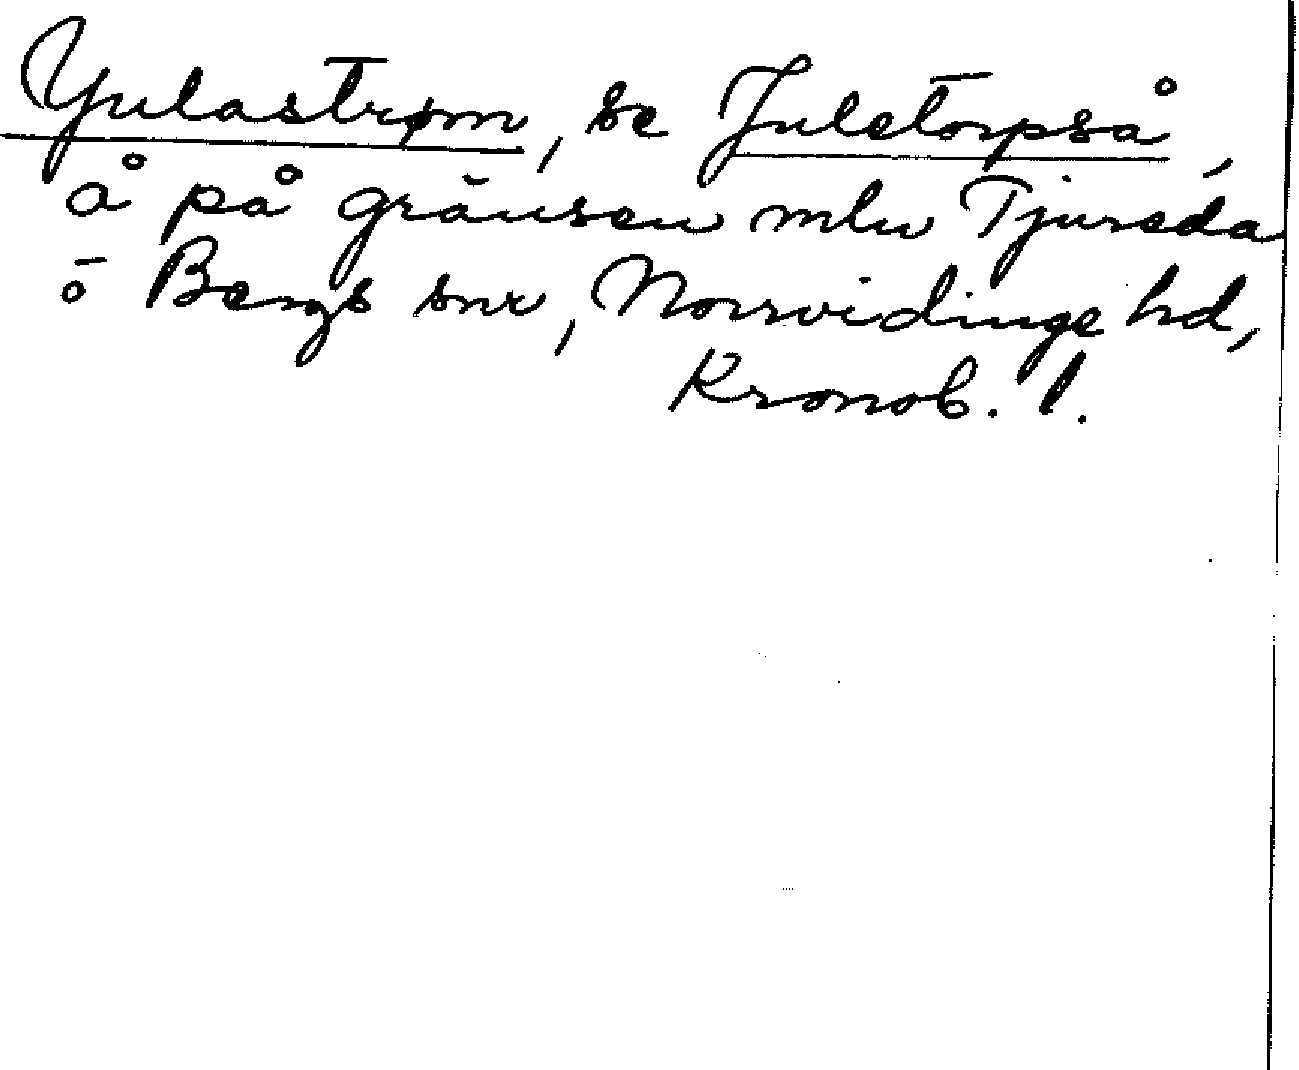 Yulastrøm, se Juletorpså,
å på gränsen mln Tjureda
o Bergs snr, Norrvidinge hd,
Kronob. l.